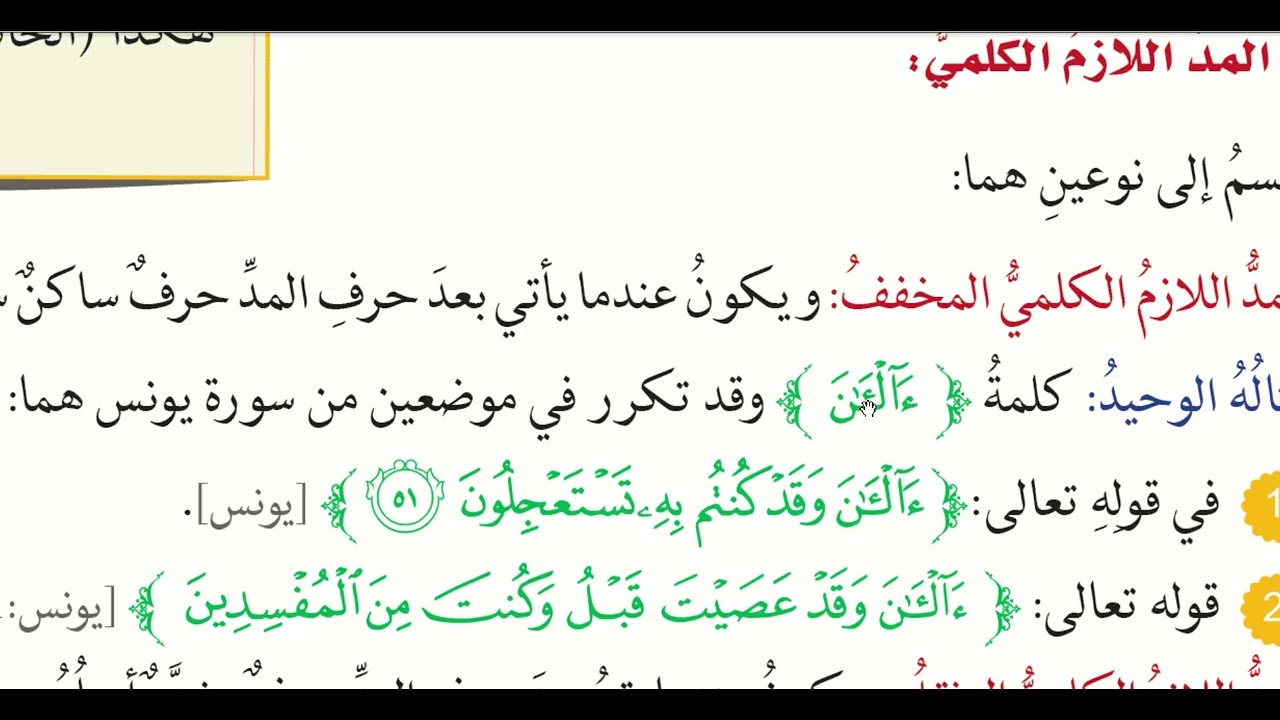 المدُّ اللازمُ الكلميُّ:
هكذا
إلى نوعينِ هما:
اللازمُ الكلميُّ المخففُ: ويكونُ عندما يأتي بعدَ حرفِ المدِّ حرفٌ ساكنٌ
الوحيدُ: كلمةُ ﴿ ءَآلْـَٰٔنَ ﴾ وقد تكرر في موضعين من سورة يونس هما:
1 في قولِهِ تعالى: ﴿ ءَآلْـَٰٔنَ وَقَدْ كُنتُم بِهِۦ تَسْتَعْجِلُونَ ٥١ ﴾ [يونس].
2 قوله تعالى: ﴿ ءَآلْـَٰٔنَ وَقَدْ عَصَيْتَ قَبْلُ وَكُنتَ مِنَ ٱلْمُفْسِدِينَ ﴾ [يونس: